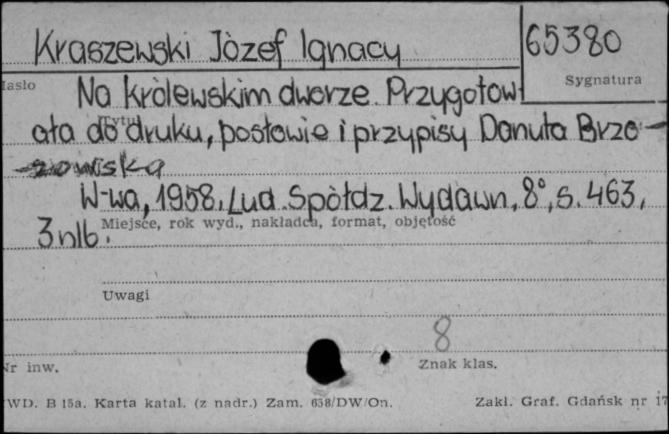 Kraszewski Józef Ignacy 65380
Hasło Sygnatura
Na królewskim dworze. Przygotow
ała do druku, posłowie i przypisy Danuta Brzo-
Tytuł
-zowiska
W-wa, 1958, Lud. Spółdz. Wydawn, 8°, s. 463,
Miejsce, rok wyd., nakładca, format, objętość
3 nlb.
Uwagi
8
Nr inw. Znak klas.
WD. B 15a. Karta katal. (z nadr.) Zam. 658/DW/On. Zakł. Graf. Gdańsk nr 17